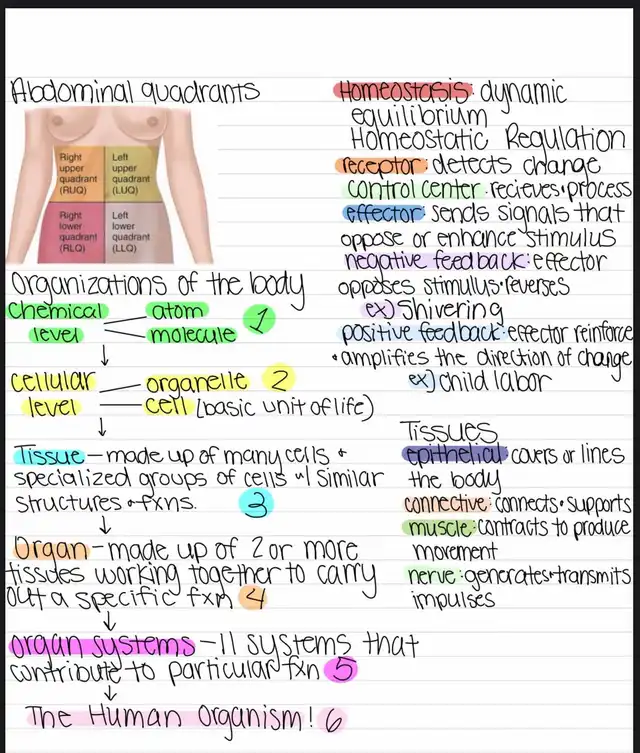 Abdominal quadrants
Right
upper
quadrant
(RUQ)
Left
upper
quadrant
(LUQ)
Right
lower
quadrant
(RLQ)
Left
lower
quadrant
(LLQ)
Organizations of the body
Chemical level — atom
molecule 1
cellular level — organelle 2
cell (basic unit of life)
Tissue – made up of many cells +
specialized groups of cells w/ similar
structures + fxns. 3
Organ – made up of 2 or more
tissues working together to carry
out a specific fxn 4
organ systems – 11 systems that
contribute to particular fxn 5
The Human Organism! 6
Homeostasis: dynamic
equilibrium
Homeostatic Regulation
receptor: detects change
control center: recieves + process
effector: sends signals that
oppose or enhance stimulus
negative feedback: effector
opposes stimulus + reverses
ex) Shivering
positive feedback: effector reinforce
+ amplifies the direction of change
ex) child labor
Tissues
epithelial: covers or lines
the body
connective: connects + supports
muscle: contracts to produce
movement
nerve: generates + transmits
impulses